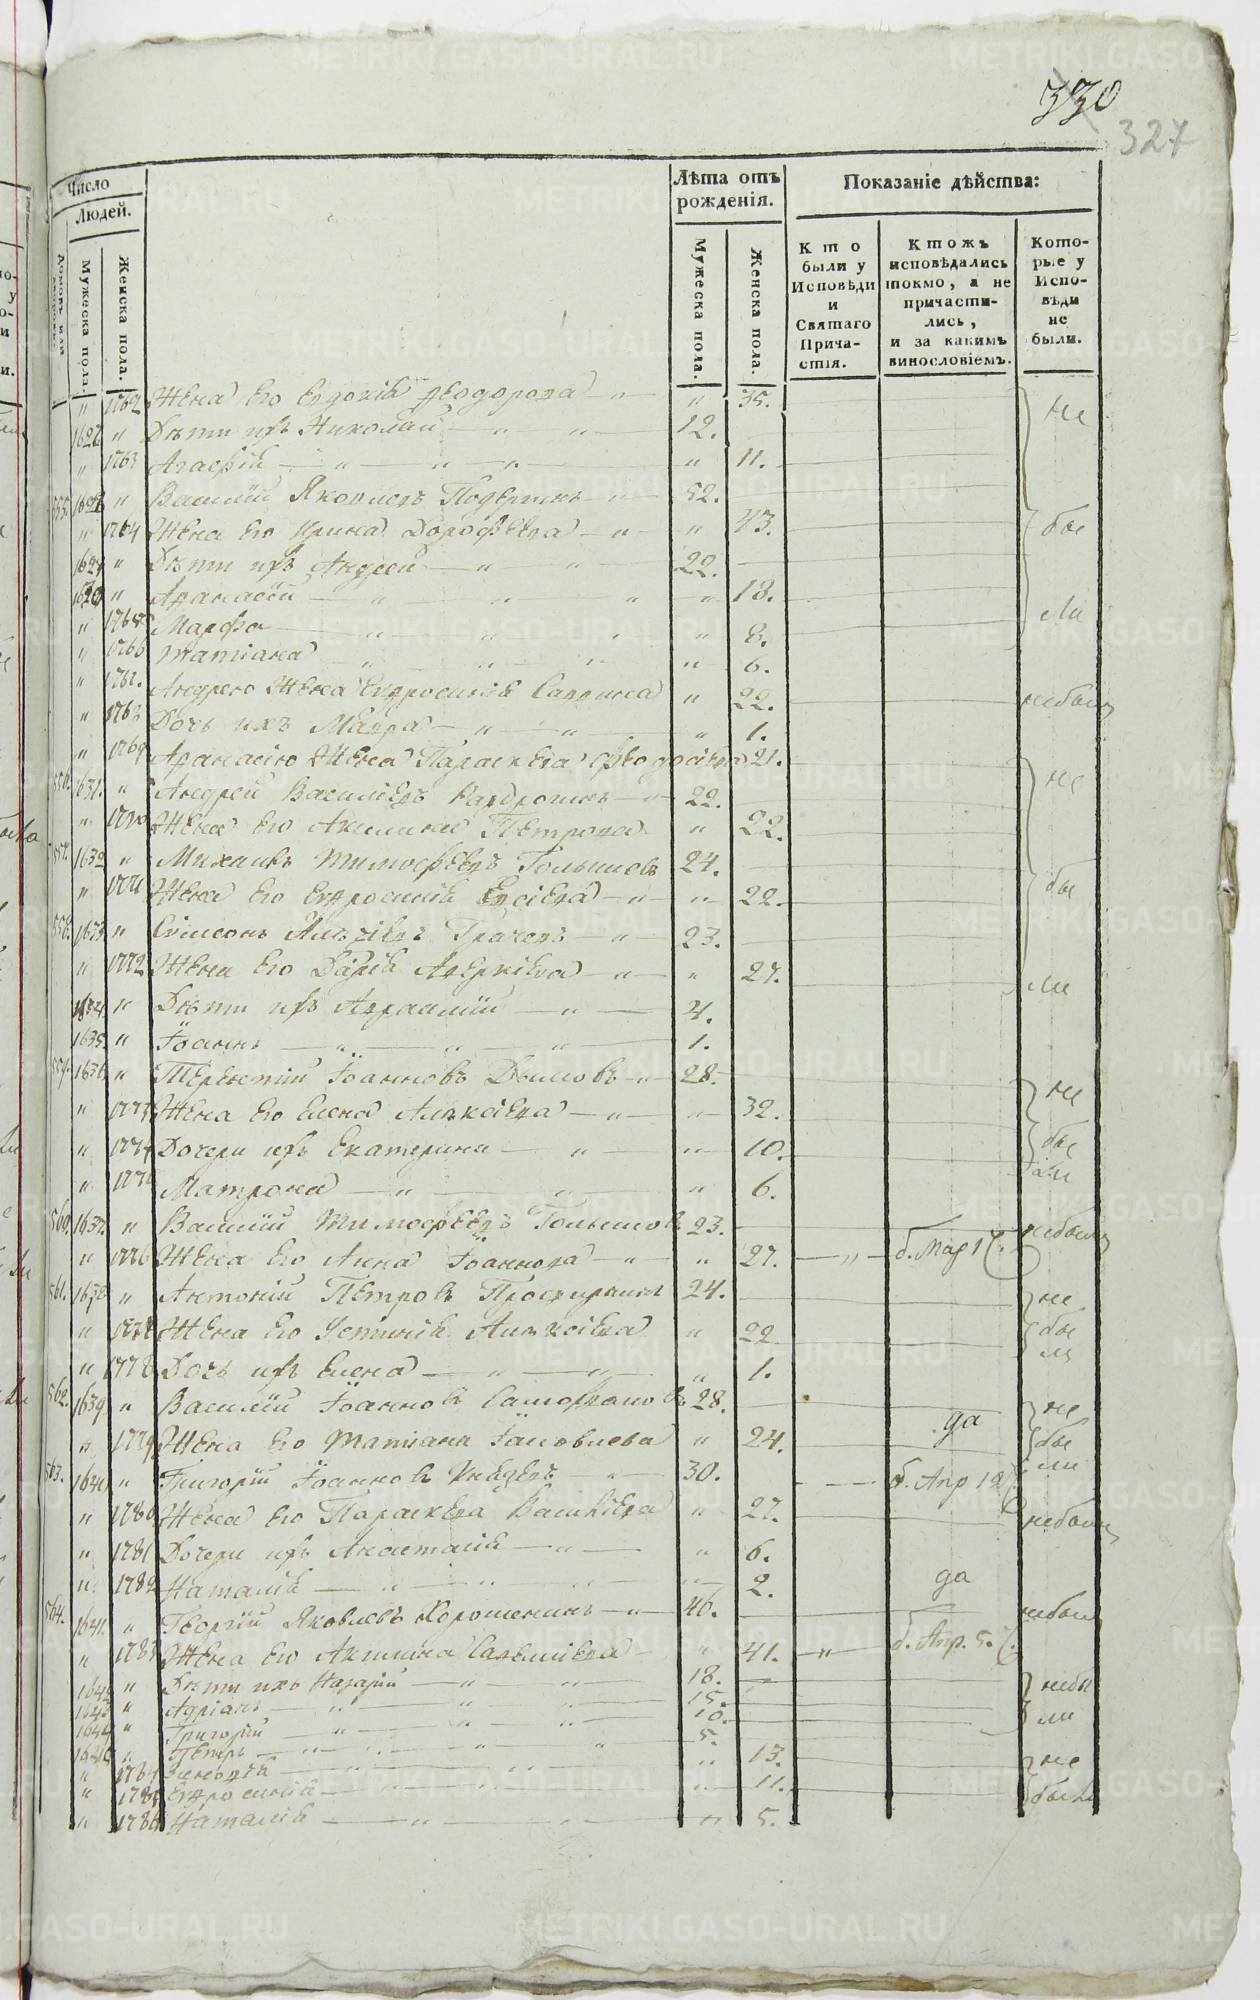 330
327
Число
Людей.
Лѣта отъ
рожденія.
Показаніе дѣйства:
Домовъ или
Мужеска пола.
Женска пола.
Мужеска пола.
Женска пола.
Кто
были у
Исповѣди
и
Святаго
Прича-
стія.
Ктожъ
исповѣдались
токмо, а не
причасти-
лись,
и за какимъ
винословіемъ.
Кото-
рые у
Испо-
вѣди
не
были.
" 1762 Жена Его Евдокія Ѳеодорова " " 35. не
1627 " Дѣти ихъ Николай " " 12.
" 1763 Агафія " " " " 11.
555. 1628 " Василій Яковлевъ " 52.
" 1764 Жена Его Ирина Дорофѣева " " 43. бы
1629 " Дѣти ихъ Андрей " " 22.
1630 " Аѳанасій " " " " 18. ли
" 1765 Марфа " " " " 8.
" 1766 Татіана " " " " 6.
" 1767. Андрею Жена Евфросинія Саввина " 22. небыли
" 1768 Дочь ихъ Мавра " " " 1.
" 1769 Аѳанасію Жена Параскева 21.
556. 1631. " Андрей Василіевъ " 22. не
" 1770 Жена Его Акилина Петрова " 22.
557. 1632 " Михаилъ Тимофѣевъ Голышовъ 24.
" 1771 Жена Его Евфросинія " " 22. бы
558. 1633 " Сѵмеонъ Алексіевъ Грачевъ " 23.
" 1772 Жена Его Дарія Аверкіева " " 27. ли
1634. " Дѣти ихъ Авраамій " 4.
1635. " Іоаннъ " " " 1.
559. 1636. " Терентій Іоанновъ Дымовъ " 28. не
" 1773 Жена Его Елена Алексіева " " 32.
" 1774 Дочери ихъ Екатерина " " 10. бы
" 1775 Матрона " " " 6. ли
560. 1637. " Василій Тимофѣевъ Голышовъ 23. небыли
" 1776 Жена Его Анна Іоаннова " " 27. " б. Мар 17.
561. 1638 " Антоній Петровъ 24. не
" 1777 Жена Его Устинія Алексіева " 22 бы
" 1778 Дочь ихъ Елена " " " 1. ли
562. 1639. " Василій Іоанновъ 28. не
да
" 1779 Жена Его Татіана Іаковлева " 24. бы
563. 1640 " Григорій Іоанновъ Князевъ " 30. б. Апр 12 ли
" 1780 Жена Его Параскева Василіева " 27. небыли
" 1781 Дочери ихъ Анастасія " " 6.
" 1782 Наталія " " " " 2. да
564. 1641. " Георгій Яковлевъ Хорошенинъ " 46. небыли
" 1783 Жена Его Акилина Савеліева " 41. " б. Апр. 5.
1642 " Дѣти ихъ Назарій " " 18. небы
1643 " Адріанъ " " " 15. ли
1644 " Григорій " " " 10.
1645 " Петръ " " " 5.
" 1784 " " " 13. не
" 1785 Евфросинія " " " 11. были
" 1786 Наталія " " " 5.
METRIKI.GASO-URAL.RU